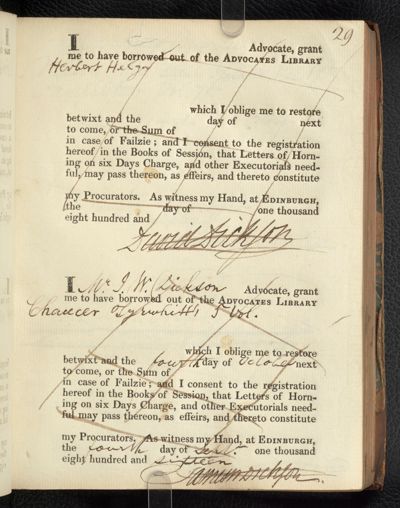 29
I Advocate, grant
me to have borrowed out of the ADVOCATES LIBRARY
Herbert
which I oblige me to restore
betwixt and the day of next
to come, or the Sum of
in case of Failzie; and I consent to the registration
hereof in the Books of Session, that Letters of Horn-
ing on six Days Charge, and other Executorials need-
ful, may pass thereon, as effeirs, and thereto constitute
my Procurators. As witness my Hand, at EDINBURGH,
the day of one thousand
eight hundred and
David Dickson
I Mr J. W. Dickson Advocate, grant
me to have borrowed out of the ADVOCATES LIBRARY
Chaucer Tyrwhitt's 5 Vol.
which I oblige me to restore
betwixt and the fourth day of October next
to come, or the Sum of
in case of Failzie; and I consent to the registration
hereof in the Books of Session, that Letters of Horn-
ing on six Days Charge, and other Executorials need-
ful may pass thereon, as effeirs, and thereto constitute
my Procurators. As witness my Hand, at EDINBURGH,
the fourth day of Sept. one thousand
eight hundred and sixteen
Dickson